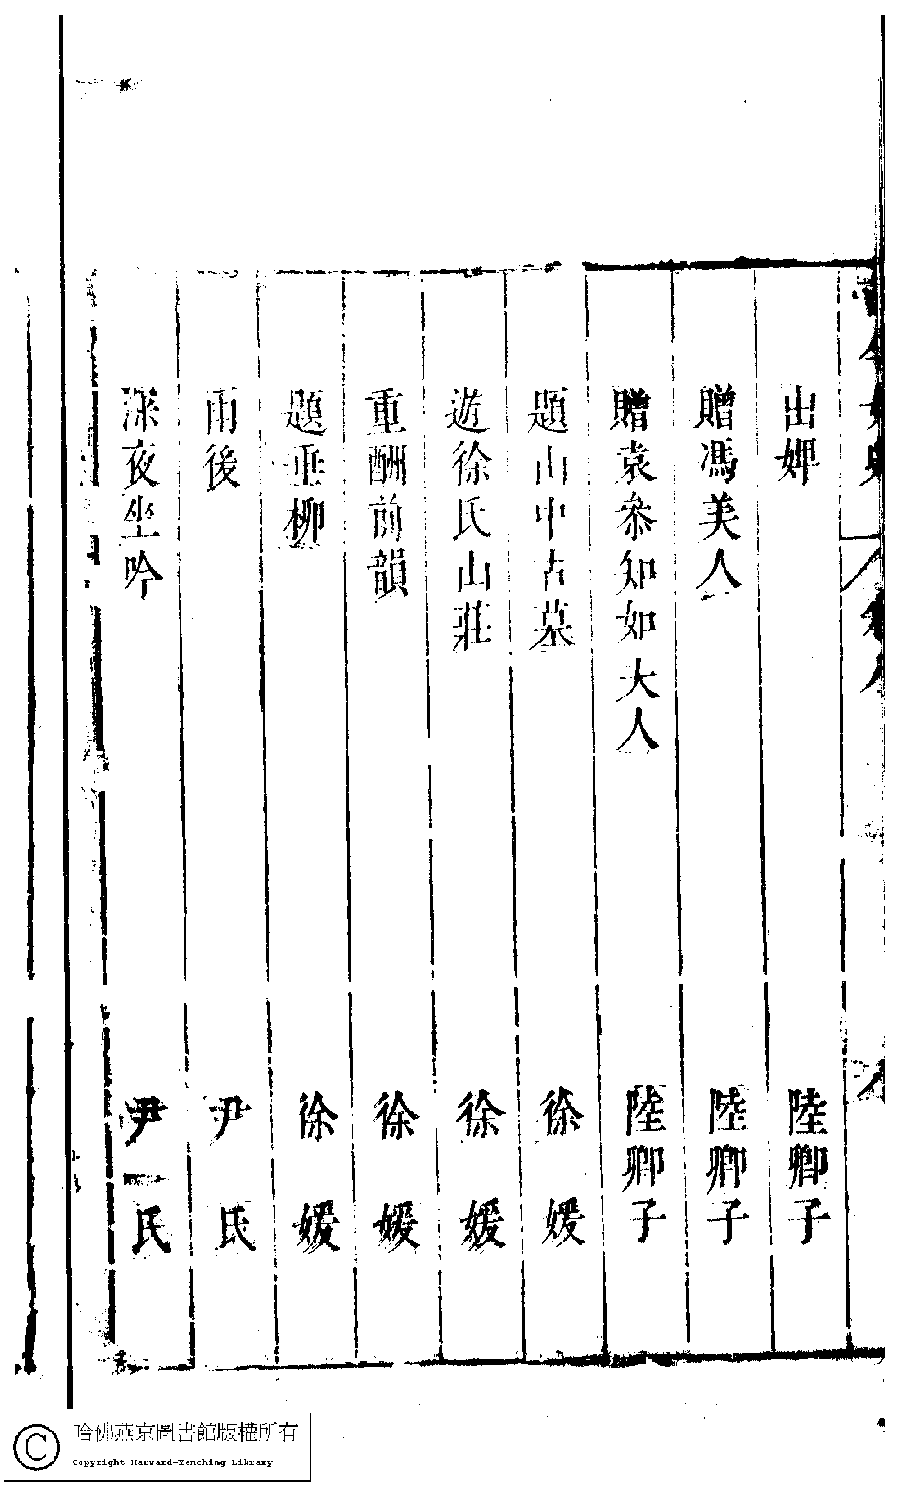 出婢 陸卿子
贈馮美人 陸卿子
贈袁參知如夫人 陸卿子
題山中古墓 徐媛
遊徐氏山莊 徐媛
重酬前韻 徐媛
題垂柳 徐媛
雨後 尹氏
深夜坐吟 尹氏
哈佛燕京圖書館版權所有
Copyright Harvard-Yenching Library